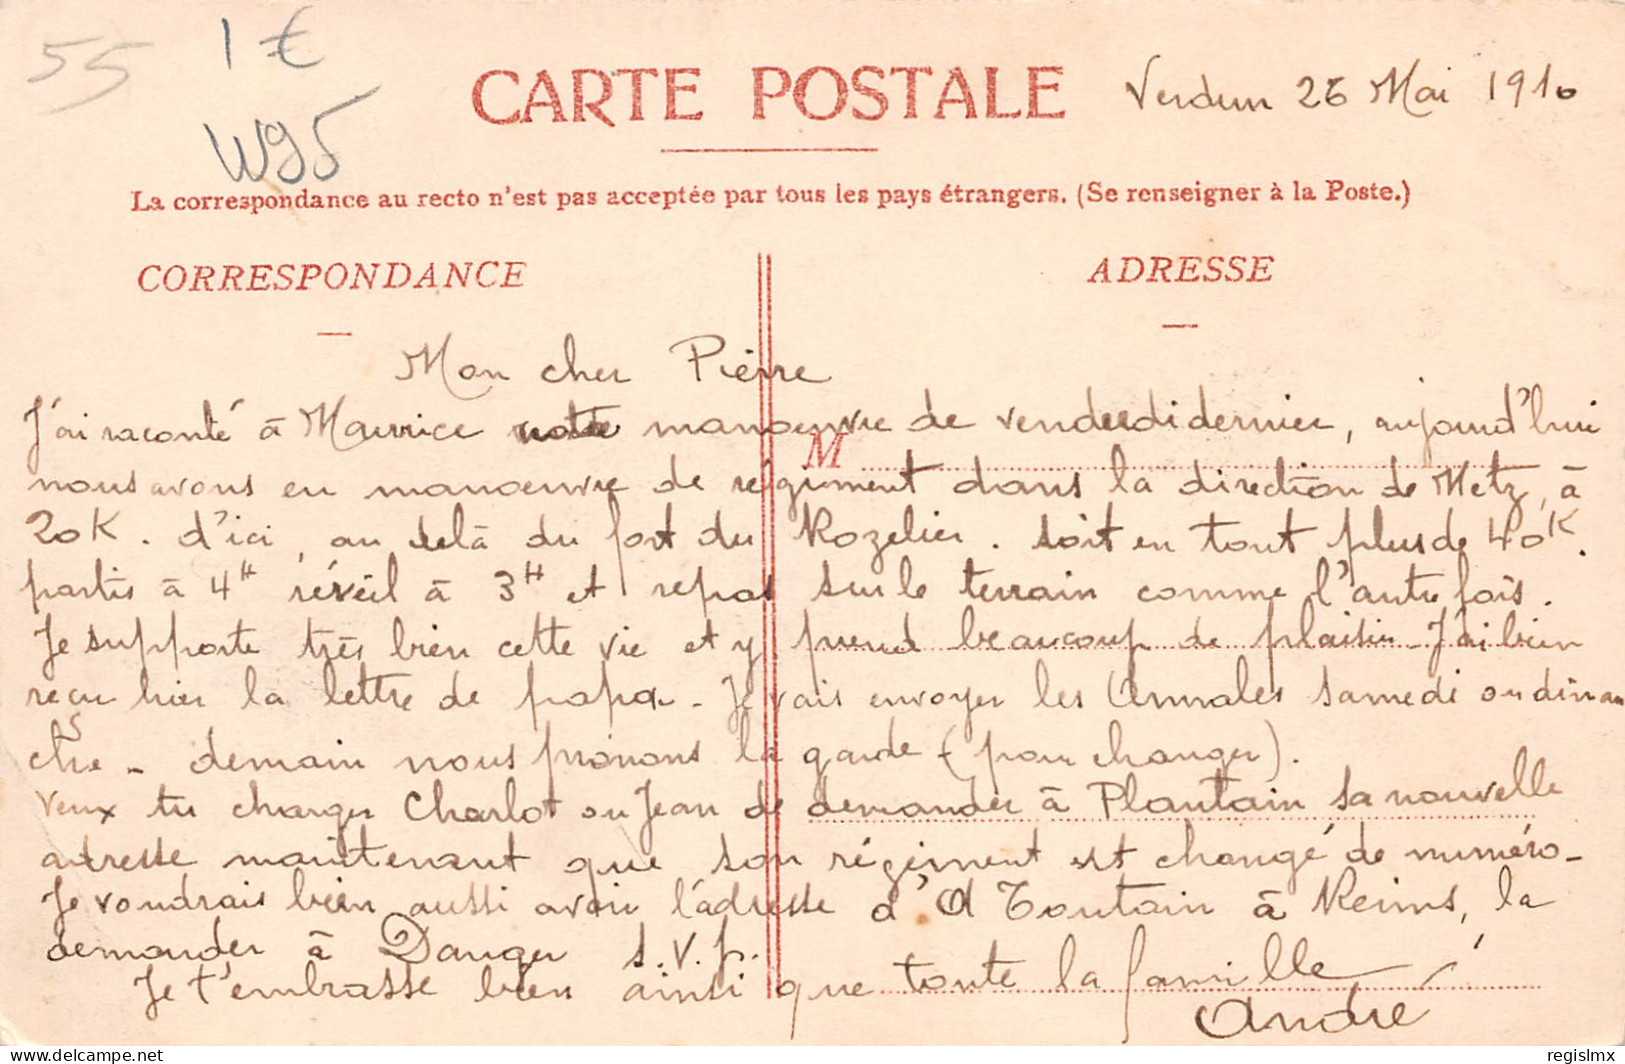 55
1 €
W95
CARTE POSTALE
Verdun 26 Mai 1910
La correspondance au recto n'est pas acceptée par tous les pays étrangers. (Se renseigner à la Poste.)
CORRESPONDANCE
ADRESSE
M
Mon cher Pierre
J'ai raconté à Maurice notre manoeuvre de vendredi dernier, aujourd'hui
nous avons eu manoeuvre de régiment dans la direction de Metz, à
20K. d'ici, au delà du fort du Rozelier. Soit en tout plus de 40K.
partis à 4H réveil à 3H et repas sur le terrain comme l'autre fois.
Je supporte très bien cette vie et y prend beaucoup de plaisir. J'ai bien
reçu hier la lettre de papa. Je vais envoyer les Annales samedi ou diman
che - demain nous prenons la garde (pour changer).
Veux tu charger Charlot ou Jean de demander à Plantain sa nouvelle
adresse maintenant que son régiment est changé de numéro -
Je voudrais bien aussi avoir l'adresse d'A Toutain à Reims, la
demander à Danger S.V.p.
Je t'embrasse bien ainsi que toute la famille
André
regislmx
Delcampe.net